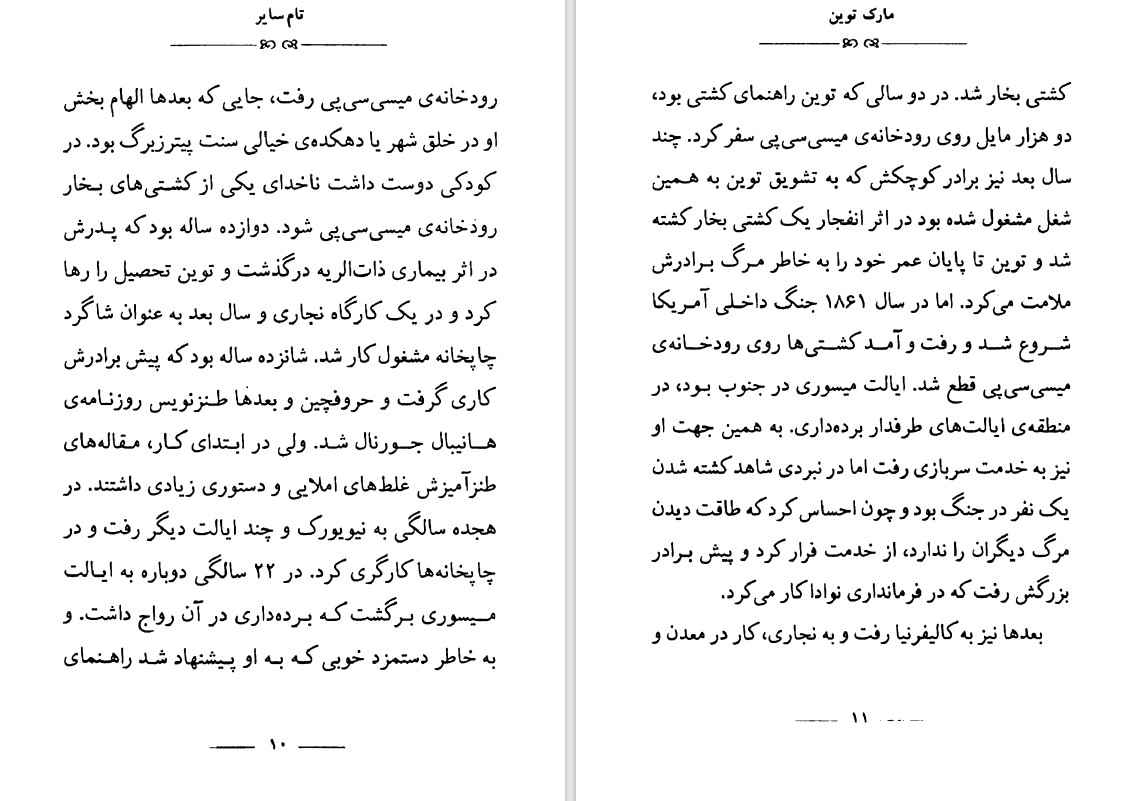 تام سایر
رودخانه‌ی میسی‌سی‌پی رفت، جایی که بعدها الهام بخش
او در خلق شهر یا دهکده‌ی خیالی سنت پیترزبرگ بود. در
کودکی دوست داشت ناخدای یکی از کشتی‌های بخار
رودخانه‌ی میسی‌سی‌پی شود. دوازده ساله بود که پدرش
در اثر بیماری ذات‌الریه درگذشت و توین تحصیل را رها
کرد و در یک کارگاه نجاری و سال بعد به عنوان شاگرد
چاپخانه مشغول کار شد. شانزده ساله بود که پیش برادرش
کاری گرفت و حروفچین و بعدها طنزنویس روزنامه‌ی
هانیبال جورنال شد. ولی در ابتدای کار، مقاله‌های
طنزآمیزش غلط‌های املایی و دستوری زیادی داشتند. در
هجده سالگی به نیویورک و چند ایالت دیگر رفت و در
چاپخانه‌ها کارگری کرد. در ۲۲ سالگی دوباره به ایالت
میسوری برگشت که برده‌داری در آن رواج داشت. و
به خاطر دستمزد خوبی که به او پیشنهاد شد راهنمای
۱۰
مارک توین
کشتی بخار شد. در دو سالی که توین راهنمای کشتی بود،
دو هزار مایل روی رودخانه‌ی میسی‌سی‌پی سفر کرد. چند
سال بعد نیز برادر کوچکش که به تشویق توین به همین
شغل مشغول شده بود در اثر انفجار یک کشتی بخار کشته
شد و توین تا پایان عمر خود را به خاطر مرگ برادرش
ملامت می‌کرد. اما در سال ۱۸۶۱ جنگ داخلی آمریکا
شروع شد و رفت و آمد کشتی‌ها روی رودخانه‌ی
میسی‌سی‌پی قطع شد. ایالت میسوری در جنوب بود، در
منطقه‌ی ایالت‌های طرفدار برده‌داری. به همین جهت او
نیز به خدمت سربازی رفت اما در نبردی شاهد کشته شدن
یک نفر در جنگ بود و چون احساس کرد که طاقت دیدن
مرگ دیگران را ندارد، از خدمت فرار کرد و پیش برادر
بزرگش رفت که در فرمانداری نوادا کار می‌کرد.
بعدها نیز به کالیفرنیا رفت و به نجاری، کار در معدن و
۱۱